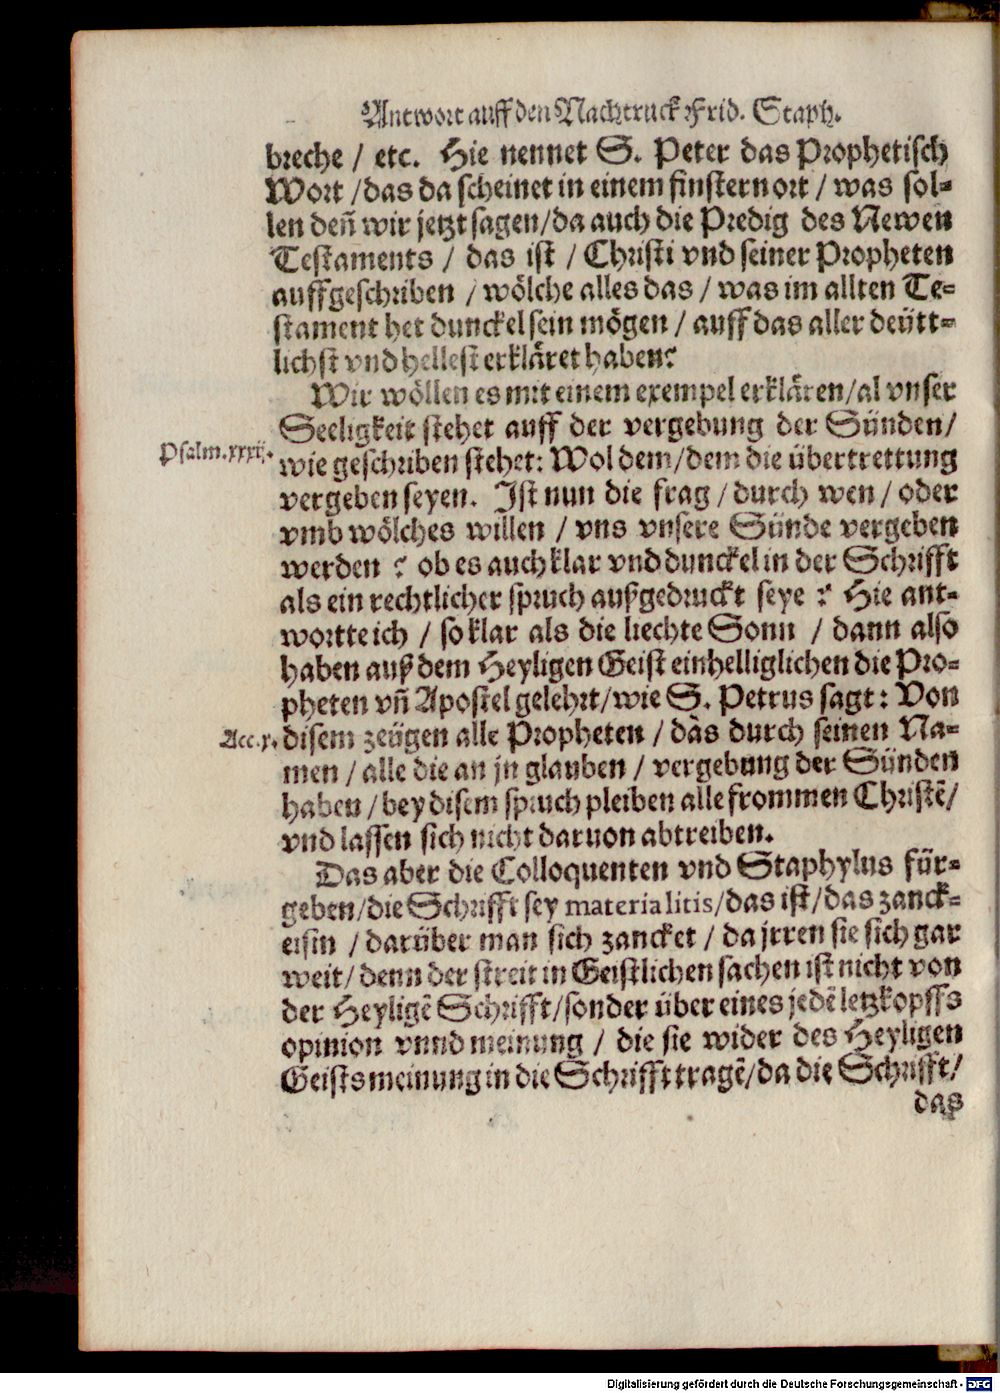 Antwort auff den Nachtruck Frid. Staph.
breche / etc. Hie nennet S. Peter das Prophetisch
Wort / das da scheinet in einem finstern ort / was sol-
len deñ wir jetzt sagen / da auch die Predig des Newen
Testaments / das ist / Christi vnd seiner Propheten
auffgeschriben / wölche alles das / was im allten Te-
stament het dunckel sein mögen / auff das aller deütt-
lichst vnd hellest erkläret haben?
Wir wöllen es mit einem exempel erklären / al vnser
Seeligkeit stehet auff der vergebung der Sünden /
Psalm.xxxij.
wie geschriben stehet: Wol dem / dem die übertrettung
vergeben seyen. Ist nun die frag / durch wen / oder
vmb wölches willen / vns vnsere Sünde vergeben
werden ? ob es auch klar vnd dunckel in der Schrifft
als ein rechtlicher spruch außgedruckt seye ? Hie ant-
wortte ich / so klar als die liechte Sonn / dann also
haben auß dem Heyligen Geist einhelliglichen die Pro-
pheten vñ Apostel gelehrt / wie S. Petrus sagt: Von
Act.x.
disem zeügen alle Propheten / das durch seinen Na-
men / alle die an jn glauben / vergebung der Sünden
haben / bey disem spruch pleiben alle frommen Christē /
vnd lassen sich nicht daruon abtreiben.
Das aber die Colloquenten vnd Staphylus für-
geben / die Schrifft sey materia litis / das ist / das zanck-
eisin / darüber man sich zancket / da jrren sie sich gar
weit / denn der streit in Geistlichen sachen ist nicht von
der Heyligē Schrifft / sonder über eines jedē letzkopffs
opinion vnnd meinung / die sie wider des Heyligen
Geists meinung in die Schrifft tragē / da die Schrifft /
das
Digitalisierung gefördert durch die Deutsche Forschungsgemeinschaft - DFG